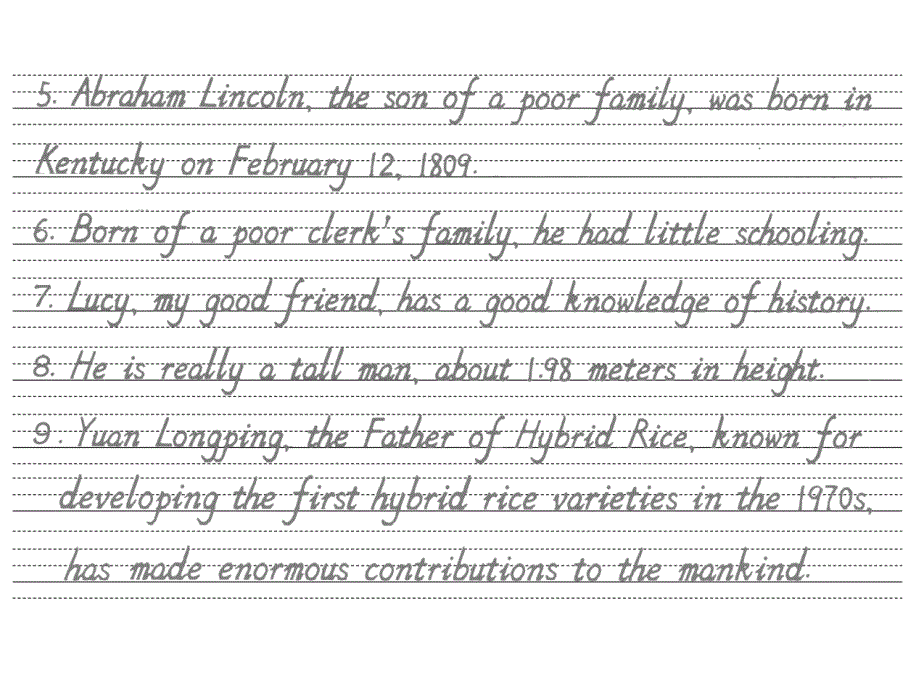 5. Abraham Lincoln, the son of a poor family, was born in
Kentucky on February 12, 1809.
6. Born of a poor clerk's family, he had little schooling.
7. Lucy, my good friend, has a good knowledge of history.
8. He is really a tall man, about 1.98 meters in height.
9. Yuan Longping, the Father of Hybrid Rice, known for
developing the first hybrid rice varieties in the 1970s,
has made enormous contributions to the mankind.